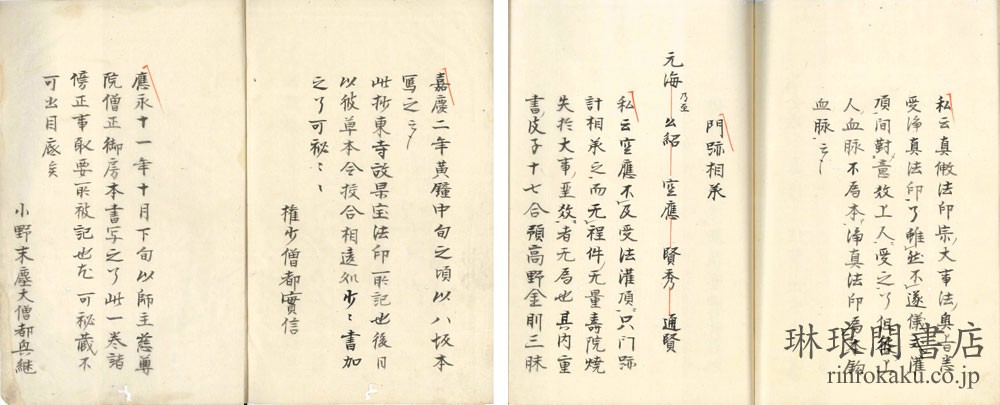 私云真倣法印宗大事法奥旨悉
受浄真法印了雖然不遂儀式灌
頂間対意教上人受之了但
人血脈不為本浄真法印為本
血脈云々
門跡相承
元海乃至公紹空應賢秀通賢
私云空應不及受法灌頂只門跡
計相承之而无程件无量壽院焼
失於大事聖教者无局也其内重
書皮子十七合預高野金剛三昧
嘉慶二年黄鐘中旬之頃以八坂本
写之云々
此抄東寺故杲宝法印所記也後日
以彼草本令校合相違処少々書加
之了可秘々々
権少僧都實信
應永十一年十月下旬以師主慈尊
院僧正御房本書写之了此一巻諸
僧正事取要所被記也尤可秘蔵不
可出目底矣
小野末塵大僧都興継
琳琅閣書店
rinrokaku.co.jp